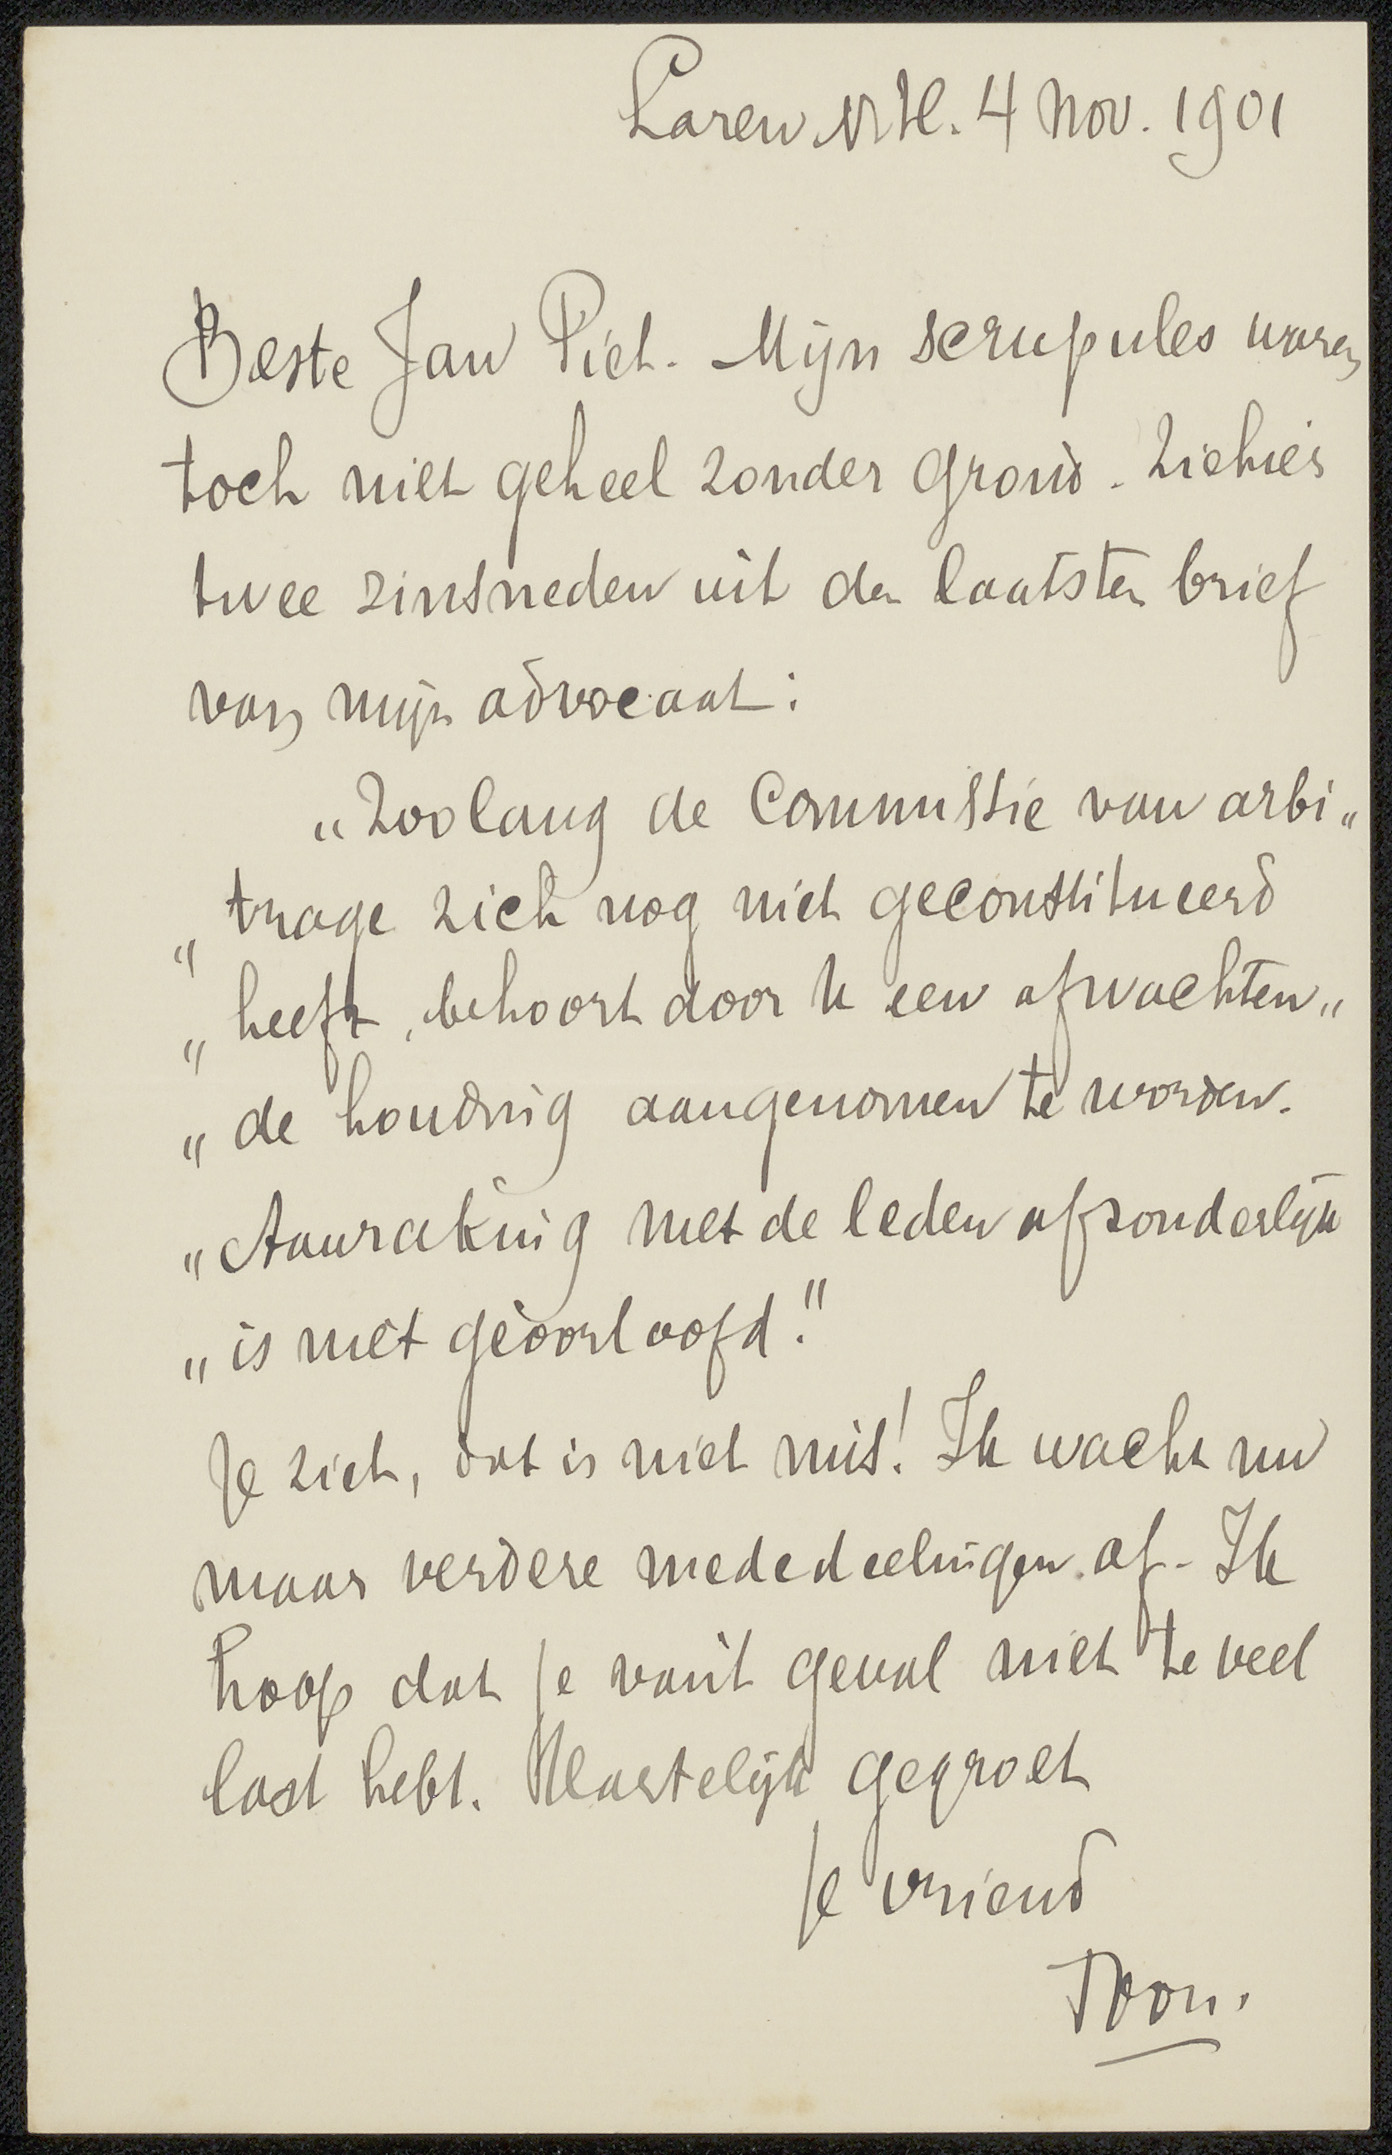 Laren N.H. 4 Nov. 1901
Beste Jan Piet. Mijn scrupules waren
toch niet geheel zonder grond. Ziehier
twee zinsneden uit den laatsten brief
van mijn advocaat:
„Zoolang de Commissie van arbi„
„trage zich nog niet geconstitueerd
„heeft, behoort door U een afwachten„
„de houding aangenomen te worden.
„Aanraking met de leden afzonderlijk
„is niet geoorloofd."
Je ziet, dat is niet mis! Ik wacht nu
maar verdere mededeelingen af - Ik
hoop dat je van't geval niet te veel
last hebt. Hartelijk gegroet
Je vriend
Toon.